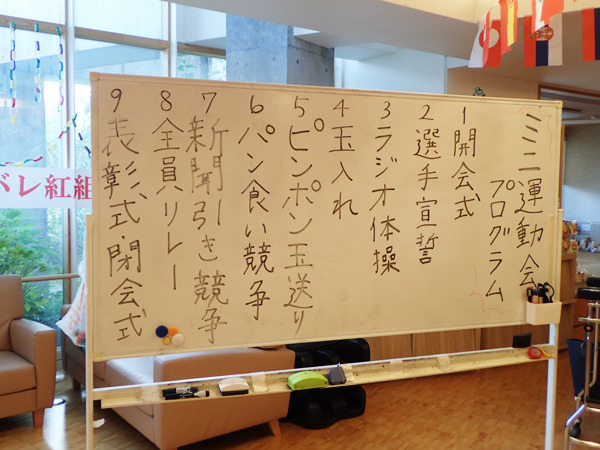 ミニ運動会
プログラム
1 開会式
2 選手宣誓
3 ラジオ体操
4 玉入れ
5 ピンポン玉送り
6 パン食い競争
7 新聞引き競争
8 全員リレー
9 表彰式・閉会式
バレ紅組